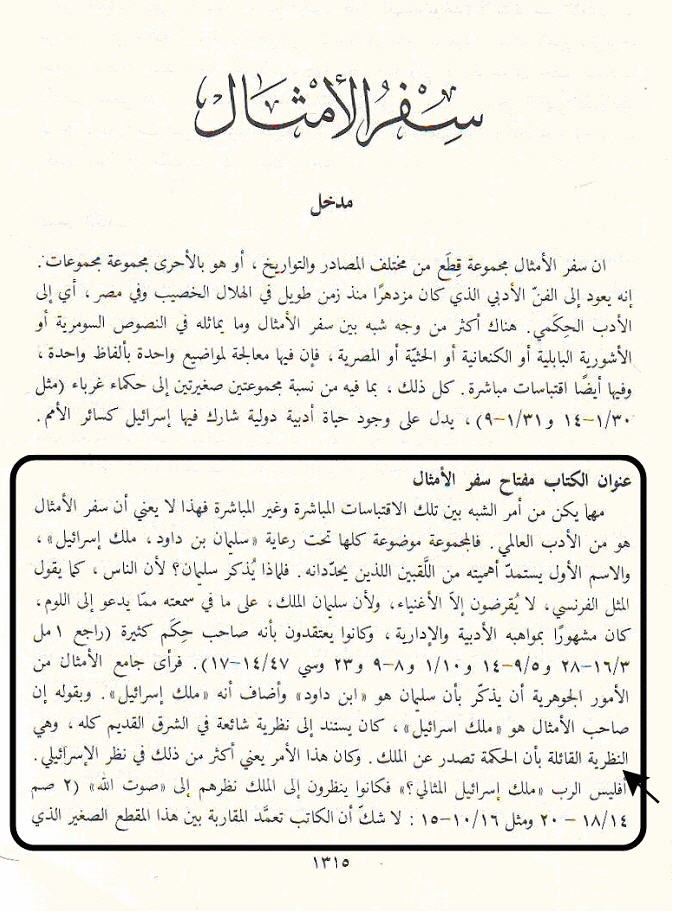 سِفْرُ الأمْثَال
مدخل
ان سفر الأمثال مجموعة قِطَع من مختلف المصادر والتواريخ ، أو هو بالأحرى مجموعة مجموعات .
إنه يعود إلى الفنّ الأدبي الذي كان مزدهرًا منذ زمن طويل في الهلال الخصيب وفي مصر ، أي إلى
الأدب الحِكَمي . هناك أكثر من وجه شبه بين سفر الأمثال وما يماثله في النصوص السومرية أو
الأشورية البابلية أو الكنعانية أو الحثيّة أو المصرية ، فإن فيها معالجة لمواضيع واحدة بألفاظ واحدة ،
وفيها أيضًا اقتباسات مباشرة . كل ذلك ، بما فيه من نسبة مجموعتين صغيرتين إلى حكماء غرباء (مثل
١/٣٠-١٤ و ١/٣١-٩) ، يدل على وجود حياة أدبية دولية شارك فيها إسرائيل كسائر الأمم .
عنوان الكتاب مفتاح سفر الأمثال
مهما يكن من أمر الشبه بين تلك الاقتباسات المباشرة وغير المباشرة فهذا لا يعني أن سفر الأمثال
هو من الأدب العالمي . فالمجموعة موضوعة كلها تحت رعاية «سليمان بن داود ، ملك إسرائيل» ،
والاسم الأول يستمدّ أهميته من اللَّقبين اللذين يحدّدانه . فلماذا يُذكر سليمان؟ لأن الناس ، كما يقول
المثل الفرنسي ، لا يُقرضون إلاّ الأغنياء ، ولأن سليمان الملك ، على ما في سمعته ممّا يدعو إلى اللوم ،
كان مشهورًا بمواهبه الأدبية والإدارية ، وكانوا يعتقدون بأنه صاحب حِكَم كثيرة (راجع ١ مل
١٦/٣-٢٨ و ٩/٥-١٤ و ١/١٠ و ٨-٩ و ٢٣ وسي ١٤/٤٧-١٧) . فرأى جامع الأمثال من
الأمور الجوهرية أن يذكّر بأن سليمان هو «ابن داود» وأضاف أنه «ملك إسرائيل» . وبقوله إن
صاحب الأمثال هو «ملك اسرائيل» ، كان يستند إلى نظرية شائعة في الشرق القديم كله ، وهي
النظرية القائلة بأن الحكمة تصدر عن الملك . وكان هذا الأمر يعني أكثر من ذلك في نظر الإسرائيلي .
أفليس الرب «ملك إسرائيل المثالي؟» فكانوا ينظرون إلى الملك نظرهم إلى «صوت الله» (٢ صم
١٨/١٤ - ٢٠ ومثل ١٠/١٦-١٥ : لا شكّ أن الكاتب تعمَّد المقاربة بين هذا المقطع الصغير الذي
١٣١٥